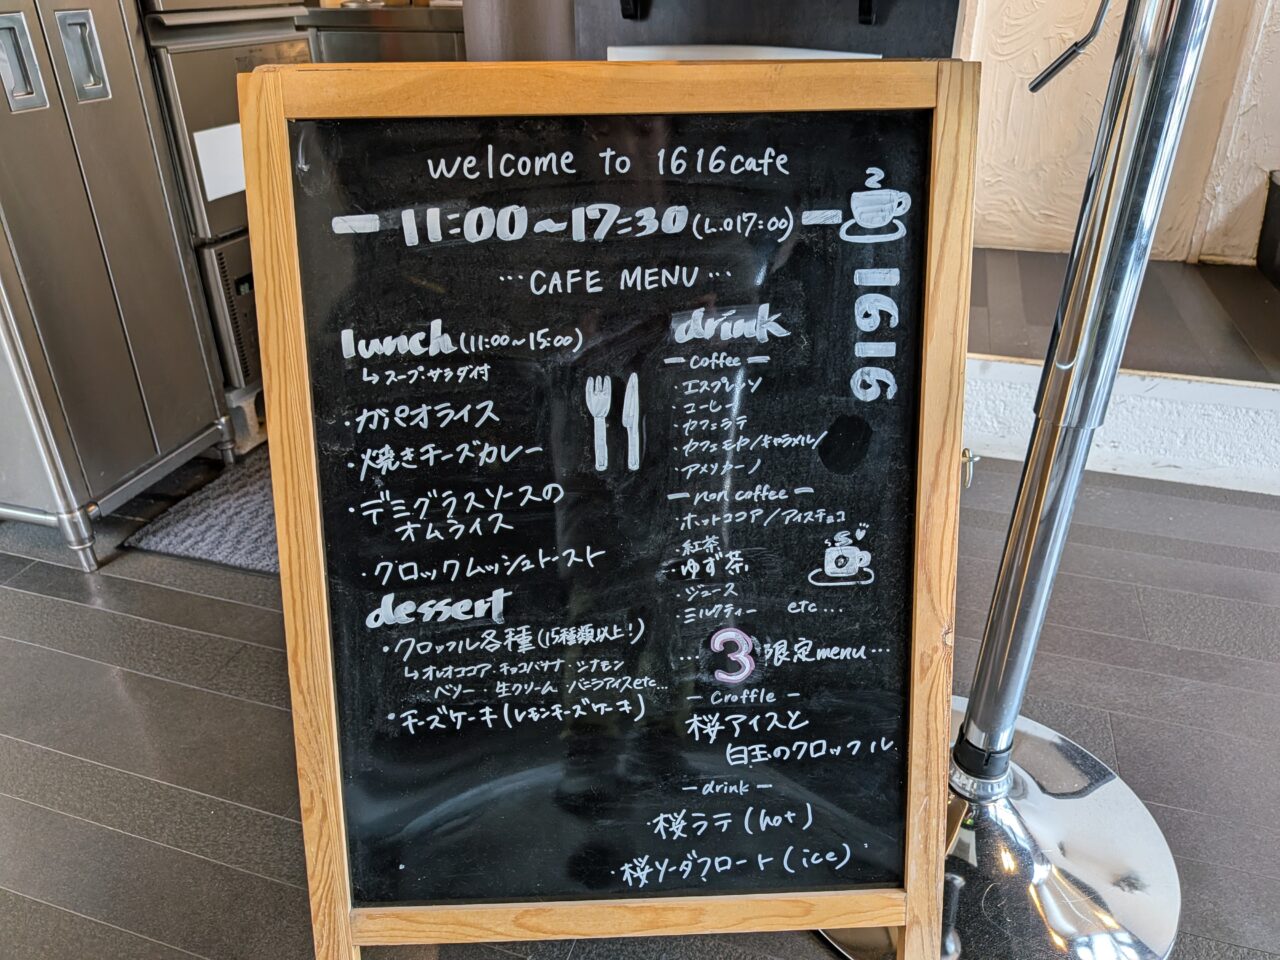 welcome to 1616cafe
11:00~17:30 (L.O17:00)
1616
… CAFE MENU …
lunch (11:00~15:00)
↳ スープ・サラダ付
・ガパオライス
・焼きチーズカレー
・デミグラスソースの
オムライス
・クロックムッシュトースト
dessert
・クロッフル各種 (15種類以上!)
↳ オレオココア・チョコバナナ・シナモン
・ベリー・生クリーム・バニラアイスetc...
・チーズケーキ (レモンチーズケーキ)
drink
ー coffee ー
・エスプレッソ
・コーヒー
・カフェラテ
・カフェモカ/キャラメル/
・アメリカーノ
ー non coffee ー
・ホットココア/アイスチョコ
・紅茶
・ゆず茶
・ジュース
・ミルクティー etc...
… 3 限定menu …
ー Croffle ー
桜アイスと
白玉のクロッフル
ー drink ー
・桜ラテ (hot)
・桜ソーダフロート (ice)